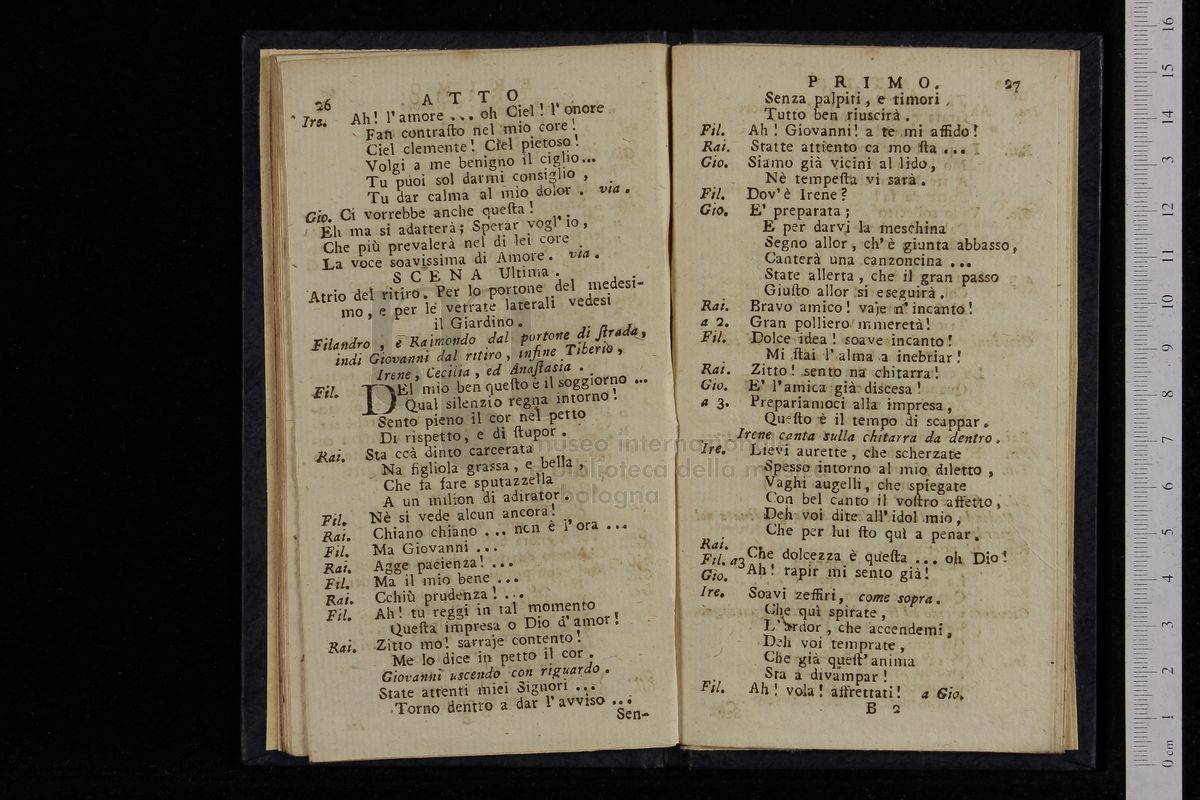 26 ATTO
Ire. Ah! l'amore ... oh Ciel! l'onore
Fan contraſto nel mio core!
Ciel clemente! Ciel pietoso!
Volgi a me benigno il ciglio...
Tu puoi sol darmi consiglio,
Tu dar calma al mio dolor. via.
Gio. Ci vorrebbe anche queſta!
Eh ma si adatterà; Sperar vogl'io,
Che più prevalerà nel di lei core
La voce soavissima di Amore. via.
SCENA Ultima.
Atrio del ritiro. Per lo portone del medesi-
mo, e per le vetrate laterali vedesi
il Giardino.
Filandro, e Raimondo dal portone di ſtrada,
indi Giovanni dal ritiro, infine Tiberio,
Irene, Cecilia, ed Anaſtasia.
Fil. DEl mio ben queſto è il soggiorno ...
Qual silenzio regna intorno!
Sento pieno il cor nel petto
Di rispetto, e di ſtupor.
Rai. Sta ccà dinto carcerata
Na figliola grassa, e bella,
Che fa fare sputazzella
A un milion di adirator.
Fil. Nè si vede alcun ancora!
Rai. Chiano chiano ... non è l'ora ...
Fil. Ma Giovanni ...
Rai. Agge pacienza! ...
Fil. Ma il mio bene ...
Rai. Cchiù prudenza! ...
Fil. Ah! tu reggi in tal momento
Queſta impresa o Dio d'amor!
Rai. Zitto mo! sarraje contento!
Me lo dice in petto il cor.
Giovanni uscendo con riguardo.
State attenti miei Signori ...
Torno dentro a dar l'avviso ...
Sen-
PRIMO. 27
Senza palpiti, e timori
Tutto ben riuscirà.
Fil. Ah! Giovanni! a te mi affido!
Rai. Statte attiento ca mo ſta ...
Gio. Siamo già vicini al lido,
Nè tempeſta vi sarà.
Fil. Dov'è Irene?
Gio. E' preparata;
E per darvi la meschina
Segno allor, ch'è giunta abbasso,
Canterà una canzoncina ...
State allerta, che il gran passo
Giuſto allor si eseguirà.
Rai. Bravo amico! vaje n'incanto!
a 2. Gran polliero mmeretà!
Fil. Dolce idea! soave incanto!
Mi ſtai l'alma a inebriar!
Rai. Zitto! sento na chitarra!
Gio. E' l'amica già discesa!
a 3. Prepariamoci alla impresa,
Queſto è il tempo di scappar.
Irene canta sulla chitarra da dentro.
Ire. Lievi aurette, che scherzate
Spesso intorno al mio diletto,
Vaghi augelli, che spiegate
Con bel canto il voſtro affetto,
Deh voi dite all'idol mio,
Che per lui ſto quì a penar.
Rai.
Fil. a3 Che dolcezza è queſta ... oh Dio!
Gio. Ah! rapir mi sento già!
Ire. Soavi zeffiri, come sopra.
Che quì spirate,
L'ardor, che accendemi,
Deh voi temprate,
Che già queſt'anima
Sta a divampar!
Fil. Ah! vola! affrettati! a Gio.
B 2
museo internazionale
biblioteca della musica
bologna
0 cm 1 2 3 4 5 6 7 8 9 10 11 12 13 14 15 16